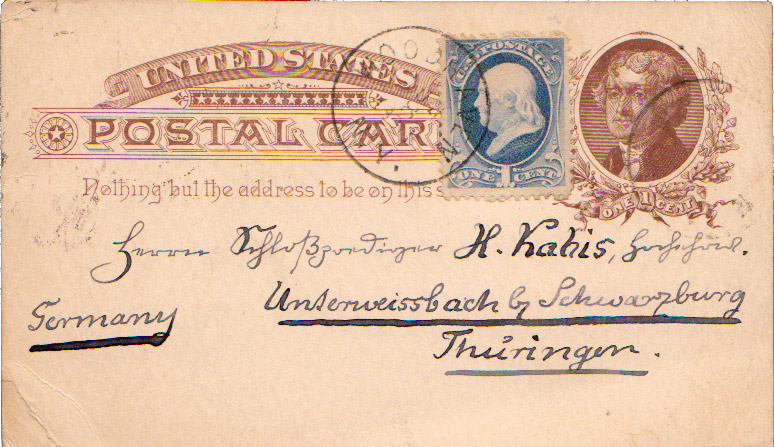 UNITED STATES
POSTAL CAR
Nothing but the address to be on this s
U.S. POSTAGE
ONE 1 CENT
ONE 1 CENT
Herrn Schloßprediger H. Kahis,
Unterweissbach b/ Schwarzburg
Germany
Thüringen.